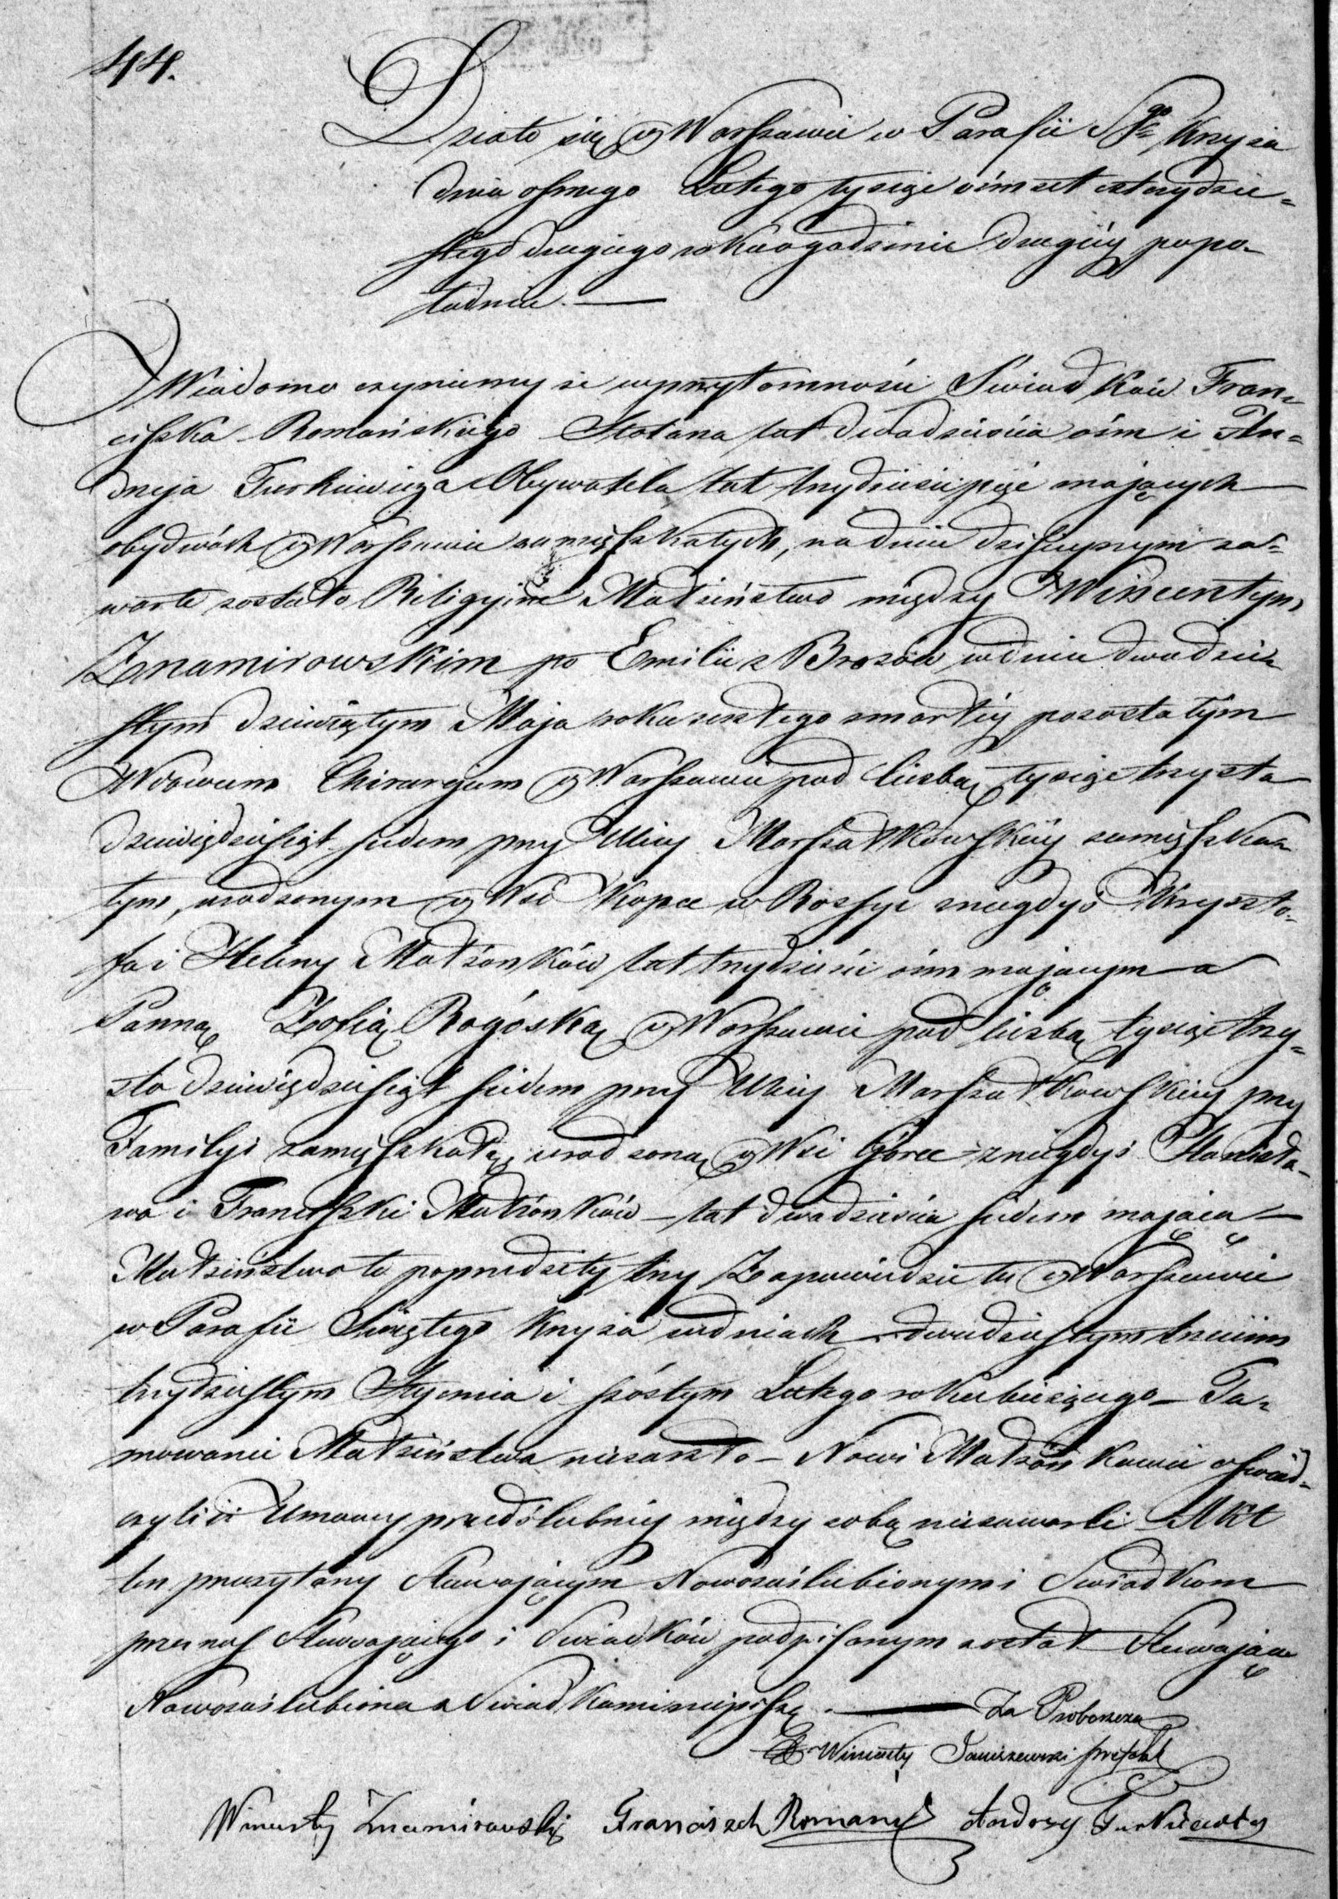 44.
Działo się w Warszawie w Parafii Sgo Krzyża
dnia osmego Lutego tysiąc ośmset czterydzie-
stego drugiego roku o godzinie drugiéy popo-
łudniu. —
Wiadomo czyniemy że w przytomności Świadków Fran-
ciszka Romańskiego Stolarza lat dwadzieścia ośm i An-
drzeja Turkiewicza Obywatela lat trzydzieści pięć mających
obydwóch w Warszawie zamięszkałych, na dniu dzisieyszym za-
warte zostało Religijne Małżeństwo między Wincentym
Znamirowskim po Emilii z Brozów w dniu dwudzie-
stym dziewiątym Maja roku zeszłego zmarłéy pozostałym
Wdowcem Chirurgiem w Warszawie pod liczbą tysiąc trzysta
dziewiędziesiąt siedem przy Ulicy Marszałkowskiéy zamięszka-
łym, urodzonym w Wsi Kopce w Rossyi z niegdyś Krzyszto-
fa i Heleny Małżonków lat trzydzieści ośm mającym — a
Panną Zofią Rogóską w Warszawie pod liczbą tysiąc trzy-
sta dziewiędziesiąt siedem przy Ulicy Marszałkowskiey przy
Familyi zamięszkałą, urodzoną w Wsi Górce z niegdyś Stanisła-
wa i Franciszki Małżonków — lat dwadzieścia siedem mającą —
Małżeństwo to poprzedziły trzy Zapowiedzie tu w Warszawie
w Parafii Świętego Krzyża w dniach dwudziestym trzecim
trzydziestym Stycznia i szóstym Lutego roku bieżącego — Ta-
mowanie Małżeństwa niezaszło — Nowi Małżonkowie oświad-
czyli iż Umowy przedślubnéy między sobą niezawarli — Akt
ten przeczytany Stawającym Nowozaślubionym i Świadkom
przez nas Stawającego i Świadków podpisanym został Stawająca
Nowozaślubiona a Świadkami niepiszą. — Za Proboszcza
X. Wincenty Janiszewski prefekt
Wincenty Znamirowski Franciszek Romański Andrzy Turkiewicz